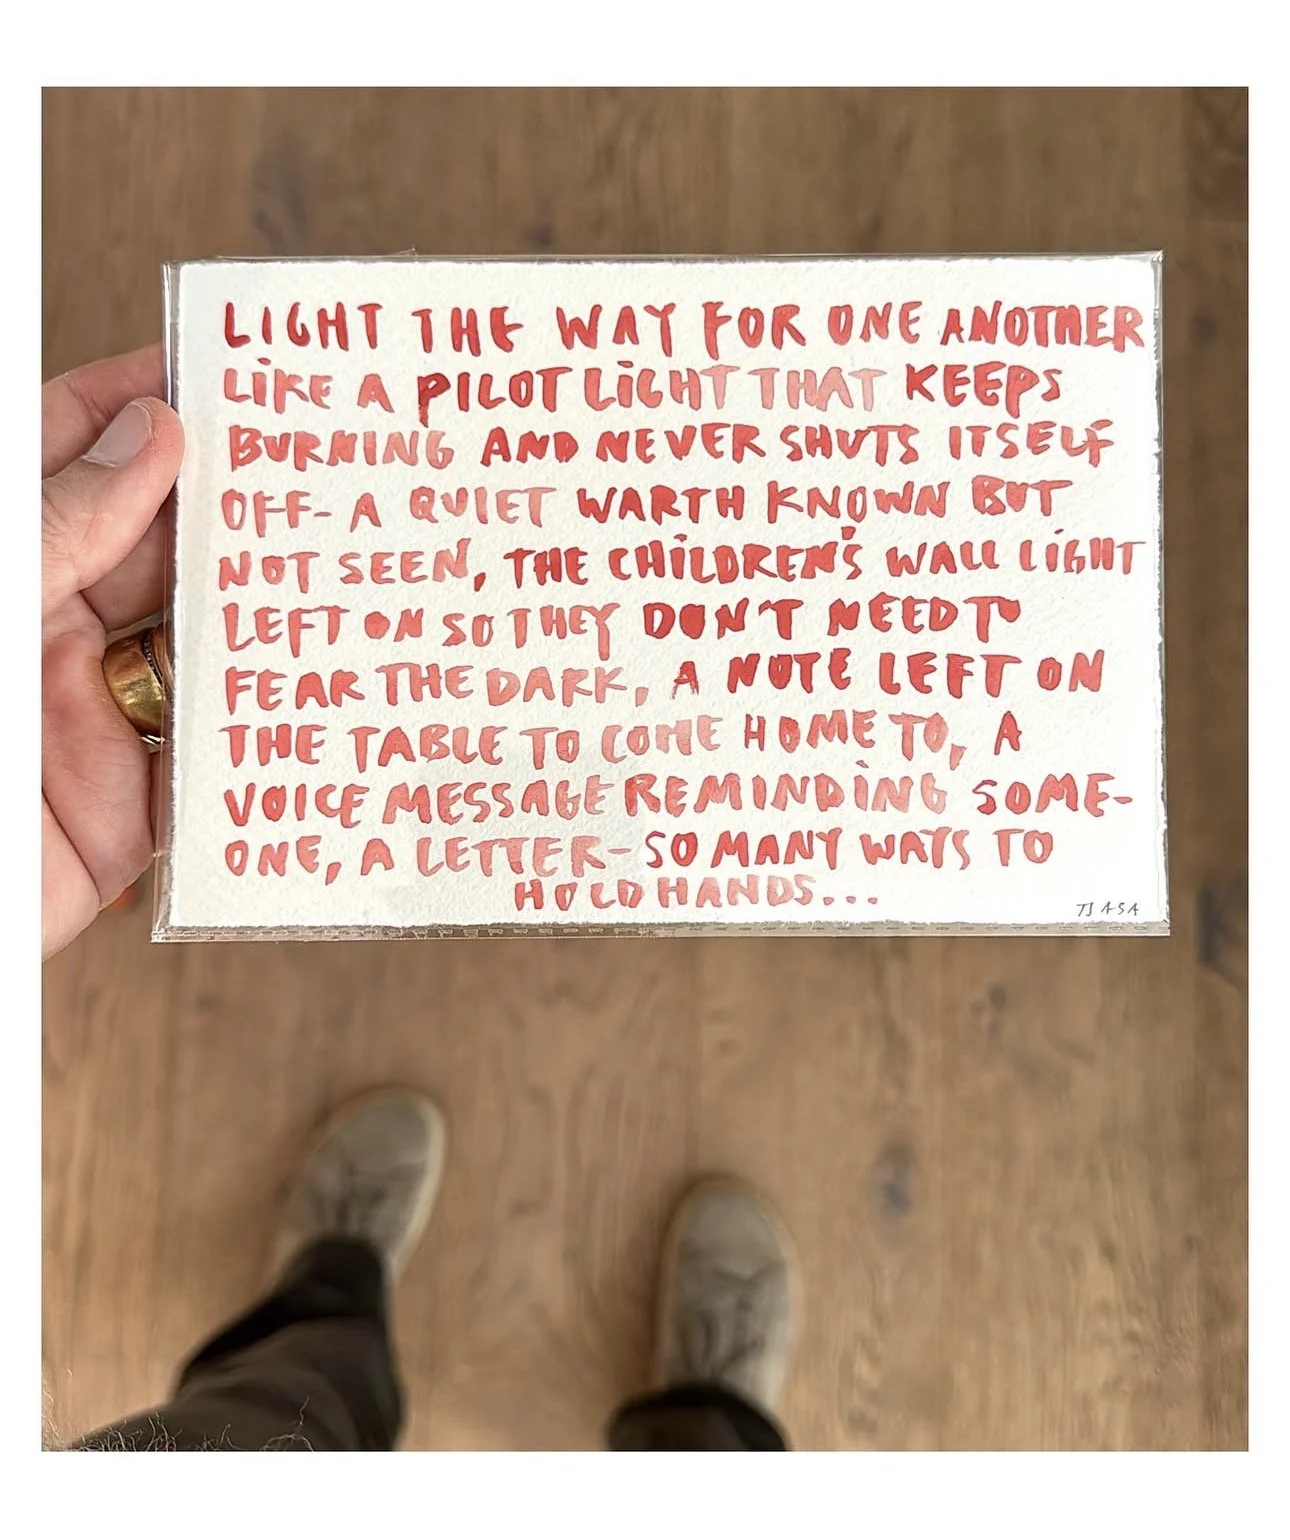 LIGHT THE WAY FOR ONE ANOTHER
LIKE A PILOT LIGHT THAT KEEPS
BURNING AND NEVER SHUTS ITSELF
OFF- A QUIET WARTH KNOWN BUT
NOT SEEN, THE CHILDREN'S WALL LIGHT
LEFT ON SO THEY DON'T NEED TO
FEAR THE DARK, A NOTE LEFT ON
THE TABLE TO COME HOME TO, A
VOICE MESSAGE REMINDING SOME-
ONE, A LETTER- SO MANY WAYS TO
HOLD HANDS...
TJASA